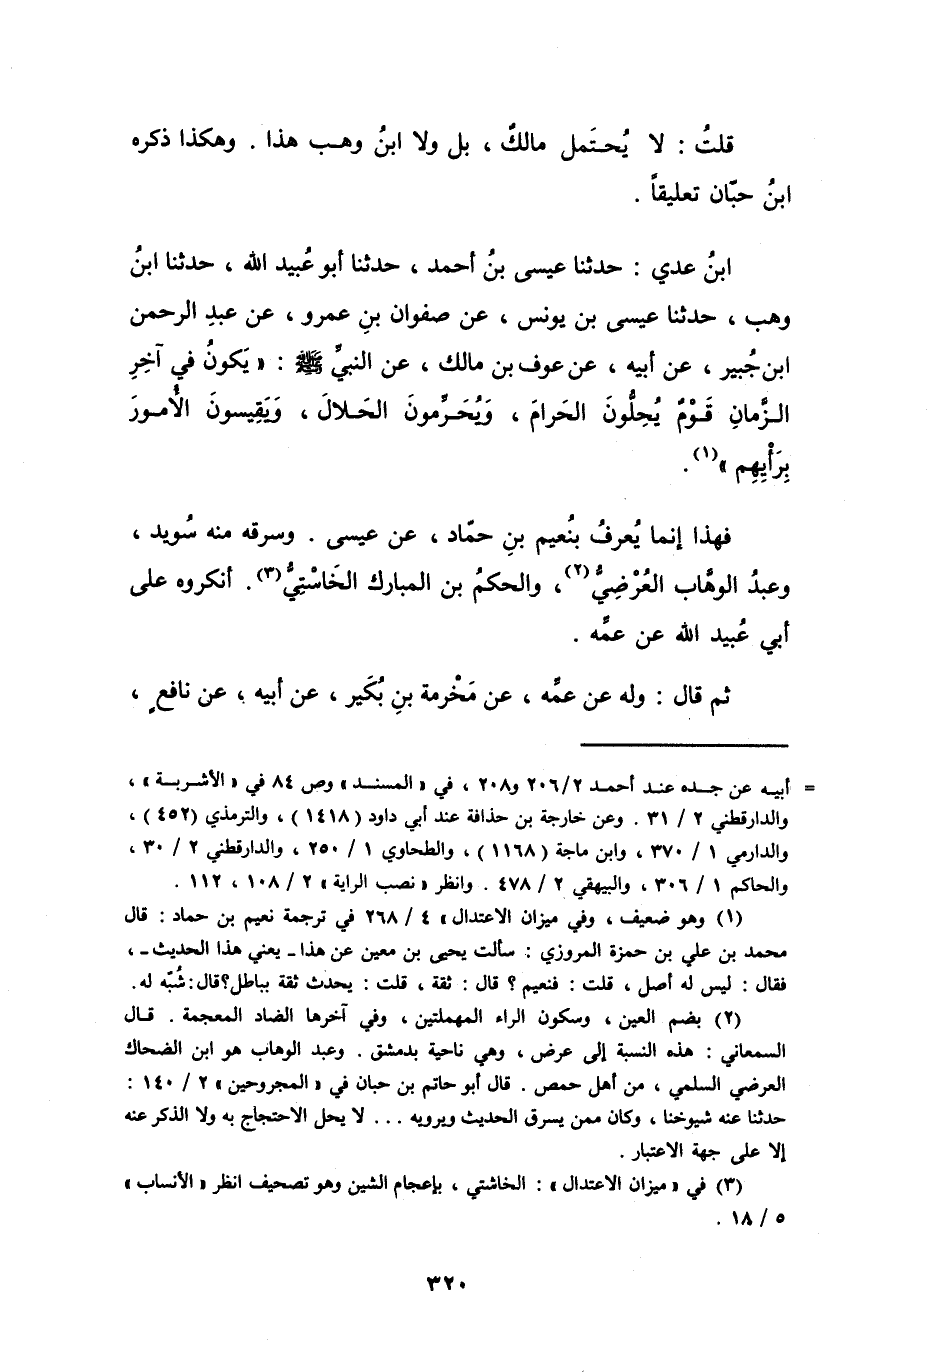 قلتُ : لا يُحـتَمل مالكٌ ، بل ولا ابنُ وهـب هذا . وهكذا ذكره
ابنُ حبّان تعليقاً .
ابنُ عدي : حدثنا عيسى بنُ أحمد ، حدثنا أبو عُبيد الله ، حدثنا ابنُ
وهب ، حدثنا عيسى بن يونس ، عن صفوان بنِ عمرو ، عن عبدِ الرحمن
ابن جُبير ، عن أبيه ، عن عوف بن مالك ، عن النبيِّ ﷺ : « يَكونُ في آخِرِ
الـزَّمانِ قَـوْمٌ يُحِلُّونَ الحَرامَ ، وَيُحَرِّمونَ الحَـلالَ ، وَيَقِيسونَ الأُمـورَ
بِرَأْيِهِم »(١) .
فهذا إنما يُعرفُ بنُعيم بنِ حمّاد ، عن عيسى . وسرقه منه سُويد ،
وعبدُ الوهَّاب العُرْضِيُّ(٢) ، والحكمُ بن المبارك الخَاسْتِيُّ(٣) . أنكروه على
أبي عُبيد الله عن عمِّه .
ثم قال : وله عن عمِّه ، عن مَخْرمة بنِ بُكَير ، عن أبيه ، عن نافعٍ ،
= أبيـه عن جـده عنـد أحمـد ٢٠٦/٢ و٢٠٨ ، في « المسنـد » وص ٨٤ في « الأشربـة » ،
والدارقطني ٢ / ٣١ . وعن خارجة بن حذافة عند أبي داود ( ١٤١٨ ) ، والترمذي (٤٥٢ ) ،
والدارمي ١ / ٣٧٠ ، وابن ماجة ( ١١٦٨ ) ، والطحاوي ١ / ٢٥٠ ، والدارقطني ٢ / ٣٠ ،
والحاكم ١ / ٣٠٦ ، والبيهقي ٢ / ٤٧٨ . وانظر « نصب الراية » ٢ / ١٠٨ ، ١١٢ .
(١) وهو ضعيف ، وفي ميزان الاعتدال » ٤ / ٢٦٨ في ترجمة نعيم بن حماد : قال
محمد بن علي بن حمزة المروزي : سألت يحيى بن معين عن هذا ـ يعني هذا الحديث ـ ،
فقال : ليس له أصل ، قلت : فنعيم ؟ قال : ثقة ، قلت : يحدث ثقة بباطل؟ قال : شُبّه له .
(٢) بضم العين ، وسكون الراء المهملتين ، وفي آخرها الضاد المعجمة . قـال
السمعاني : هذه النسبة إلى عرض ، وهي ناحية بدمشق . وعبد الوهاب هو ابن الضحاك
العرضي السلمي ، من أهل حمص . قال أبو حاتم بن حبان في « المجروحين » ٢ / ١٤٠ :
حدثنا عنه شيوخنا ، وكان ممن يسرق الحديث ويرويه ... لا يحل الاحتجاج به ولا الذكر عنه
إلا على جهة الاعتبار .
(٣) في « ميزان الاعتدال » : الخاشتي ، بإعجام الشين وهو تصحيف انظر « الأنساب »
٥ / ١٨ .
٣٢٠